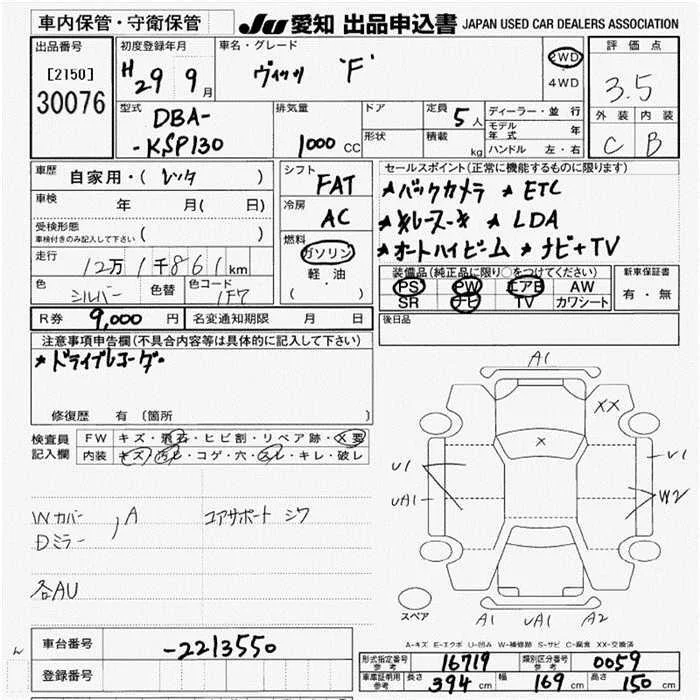 車内保管・守衛保管
JU 愛知 出品申込書 JAPAN USED CAR DEALERS ASSOCIATION
出品番号
[2150]
30076
初度登録年月
H29 9月
車名・グレード
ヴィッツ 'F'
2WD
4WD
評価点
3.5
外装 内装
C B
型式
DBA-
-KSP130
排気量
1000 CC
ドア
形状
定員 5人
積載 kg
ディーラー・並行
モデル年式 年
ハンドル 左・右
車歴 自家用・( レンタ )
車検 年 月( 日)
受検形態
車検付きのみ記入して下さい ( )
走行 12万1千861km
色 シルバー 色替 色コード 1F7
R券 9,000 円 名変通知期限 月 日
シフト FAT
冷房 AC
燃料
ガソリン
軽油
( )
セールスポイント(正常に機能するものに限ります)
★バックカメラ ★ETC
★キーレス・キ ★LDA
★オートハイビーム ★ナビ+TV
装備品(純正品に限り○をつけてください)
PS PW エアB AW
SR ナビ TV カワシート
新車保証書
有・無
後日品
注意事項申告欄(不具合内容等は具体的に記入して下さい)
★ドライブレコーダー
修復歴 有 〔箇所 〕
検査員記入欄
FW キズ・飛石・ヒビ割・リペア跡・X要
内装 キズ・汚レ・コゲ・穴・スレ・キレ・破レ
Wカバー
Dミラー , A
コアサポート シワ
各AU
A1
XX
X
U1
UA1
V1
W2
スペア
A1 UA1 A2
A-キズ E-エクボ U-凹み W-補修跡 S-サビ C-腐食 XX-交換済
車台番号 -2213550
登録番号
形式指定番号 参考 16719 類別区分番号 参考 0059
車庫証明用 参考 長さ 394 cm 幅 169 cm 高さ 150 cm